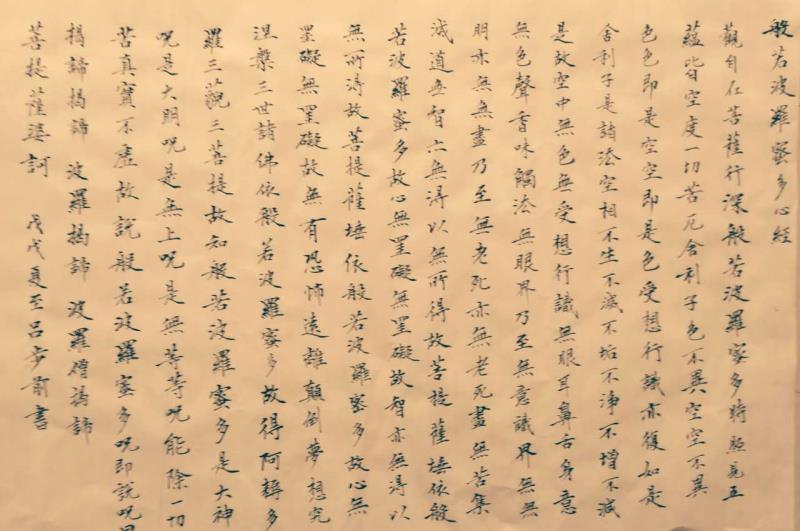 般若波羅蜜多心經
觀自在菩薩行深般若波羅蜜多時照見五
蘊皆空度一切苦厄舍利子色不異空空不異
色色即是空空即是色受想行識亦復如是
舍利子是諸法空相不生不滅不垢不淨不增不減
是故空中無色無受想行識無眼耳鼻舌身意
無色聲香味觸法無眼界乃至無意識界無無
明亦無無盡乃至無老死亦無老死盡無苦集
滅道無智亦無得以無所得故菩提薩埵依般
若波羅蜜多故心無罣礙無罣礙故智亦無得以
無所得故菩提薩埵依般若波羅蜜多故心無
罣礙無罣礙故無有恐怖遠離顛倒夢想究
涅槃三世諸佛依般若波羅蜜多故得阿耨多
羅三藐三菩提故知般若波羅蜜多是大神
呪是大明呪是無上呪是無等等呪能除一切
苦真實不虛故說般若波羅蜜多呪即說呪曰
揭諦揭諦 波羅揭諦 波羅僧揭諦
菩提薩婆訶 戊戌夏至呂步書